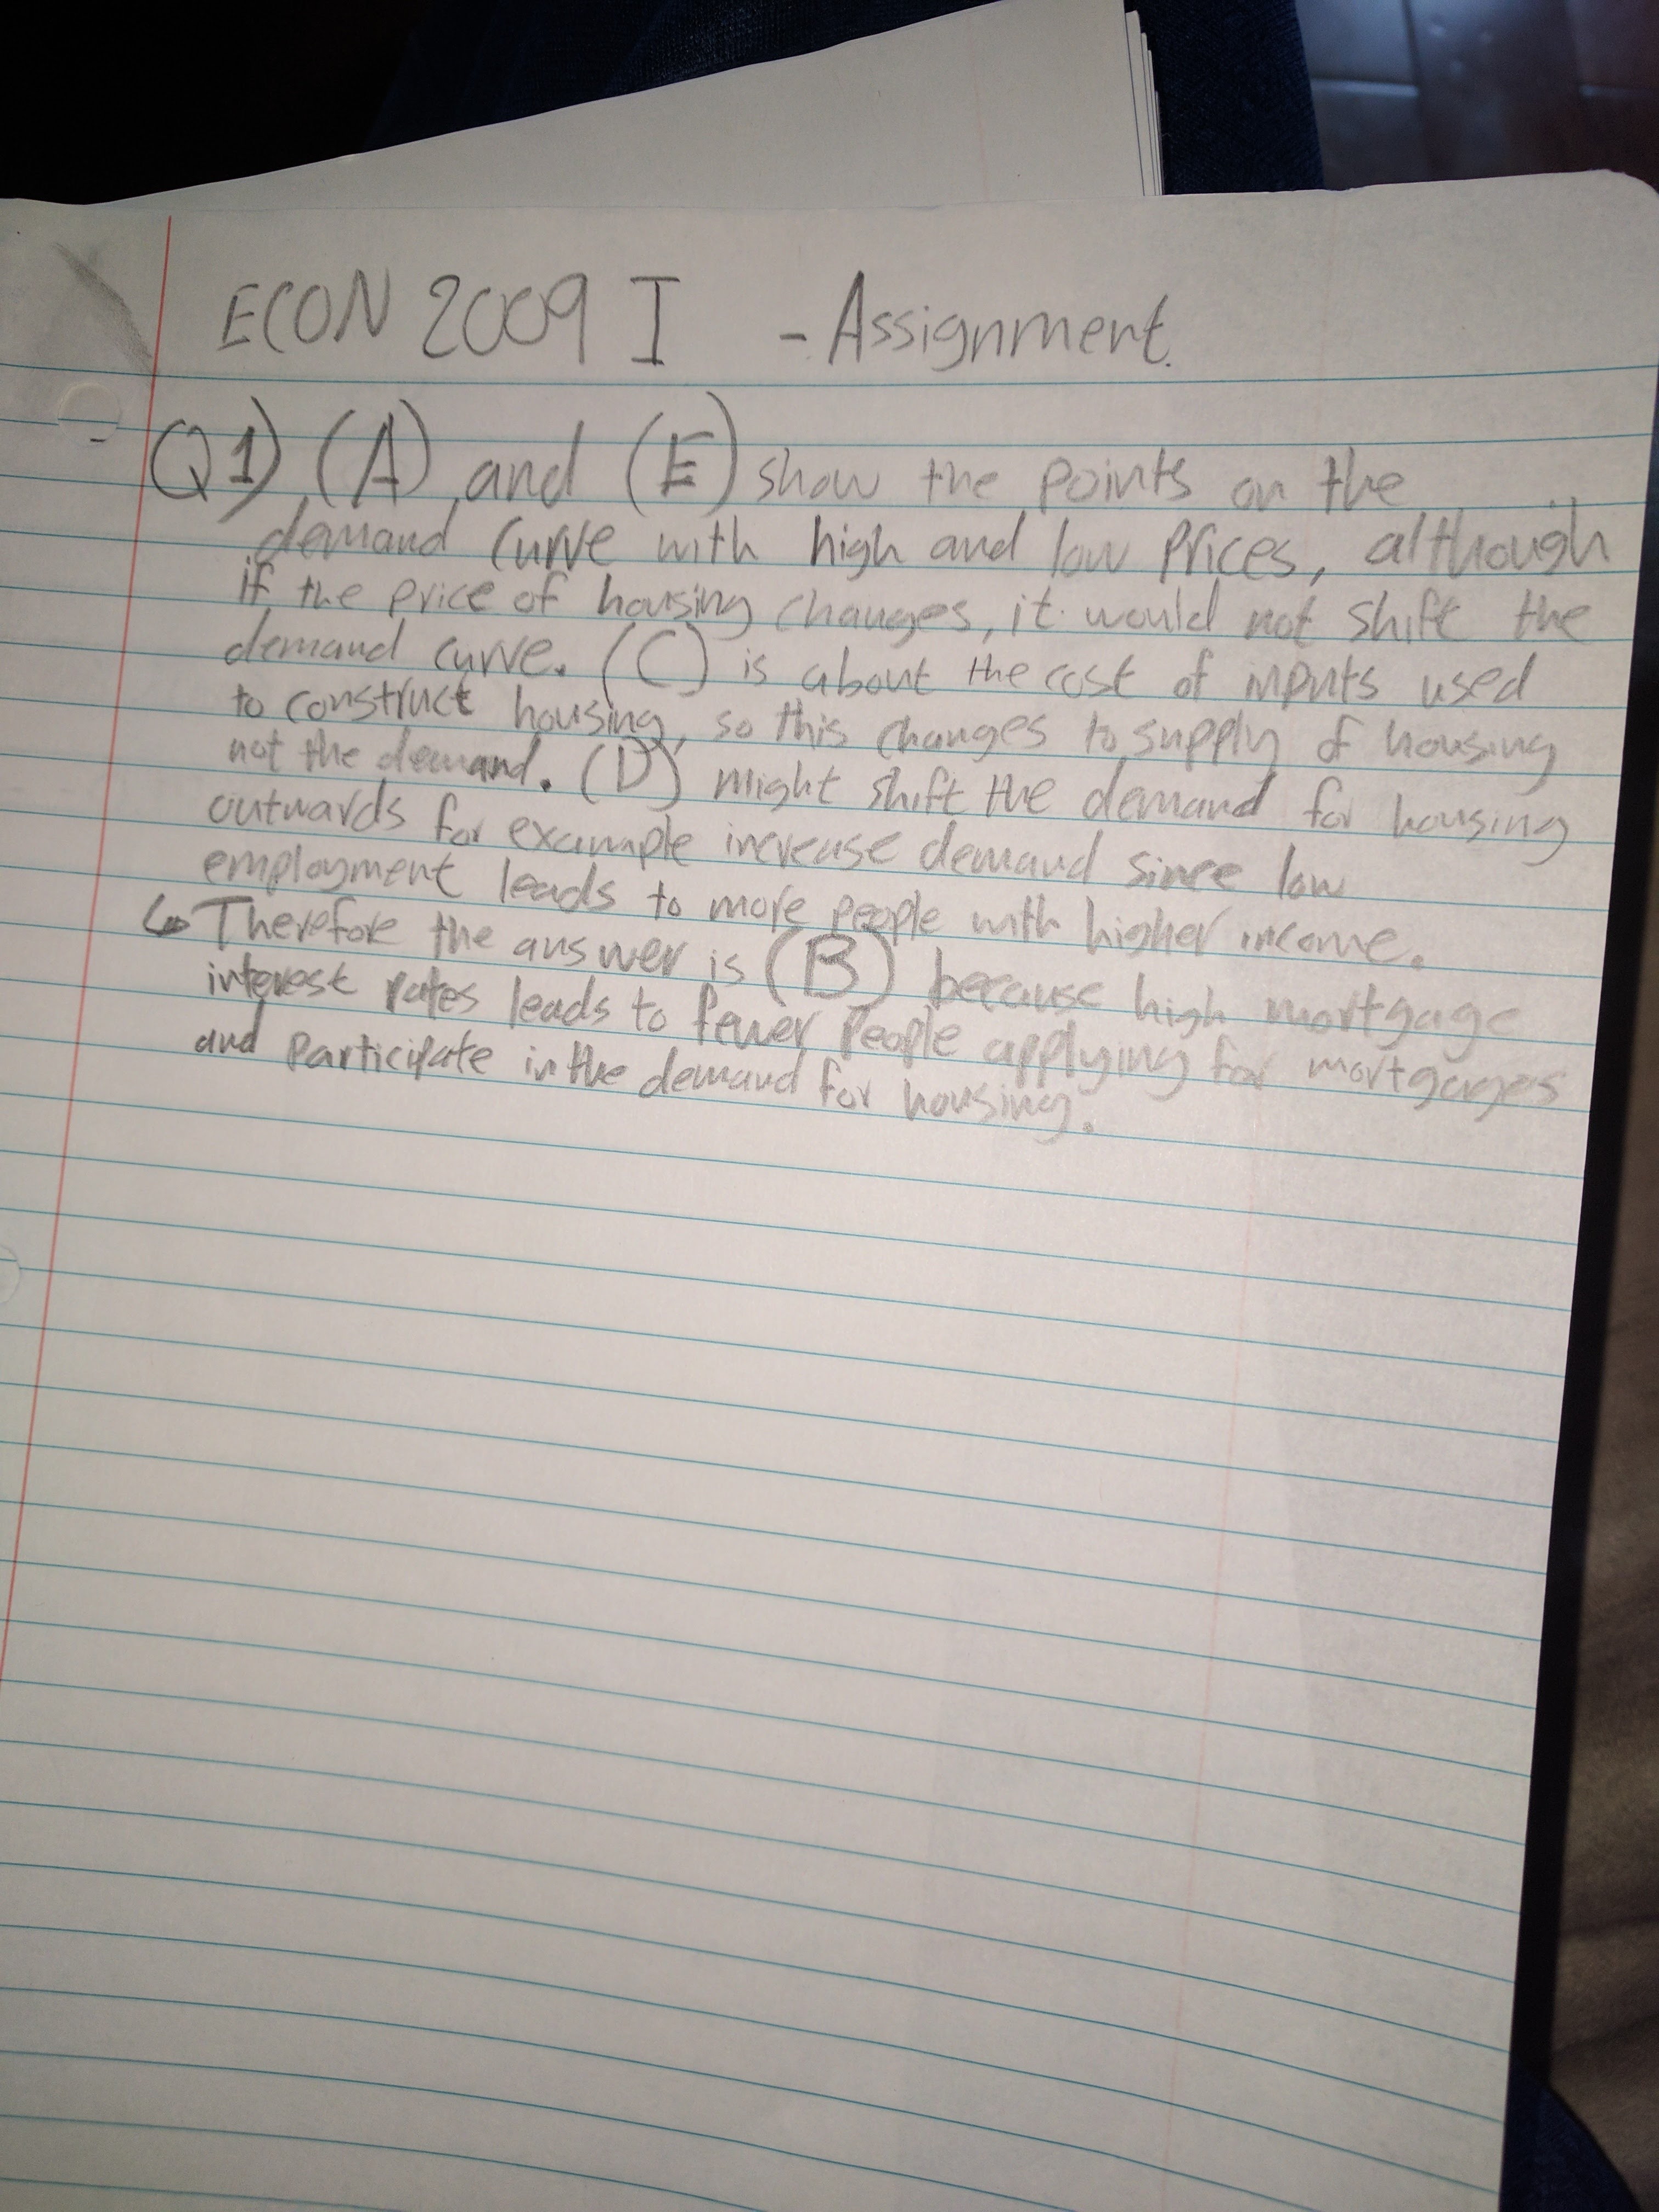 ECON 2009 I - Assignment.
Q1) (A) and (E) show the points on the
demand curve with high and low Prices, although
if the price of housing changes, it would not shift the
demand curve. (C) is about the cost of inputs used
to construct housing, so this changes to supply of housing
not the demand. (D) might shift the demand for housing
outwards for example increase demand since low
employment leads to more people with higher income.
↳ Therefore the answer is (B) because high mortgage
interest rates leads to fewer People applying for mortgages
and Participate in the demand for housing.